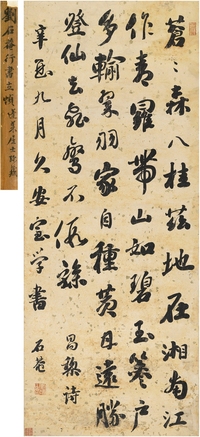 劉石菴行書立幀
蒼〻森八桂茲地在湘南江
作青羅帶山如碧玉篸戶
多輸翠羽家自種黃甘遠勝
登仙去飛鸞不假驂 昌黎詩
九月久安室學書 石菴